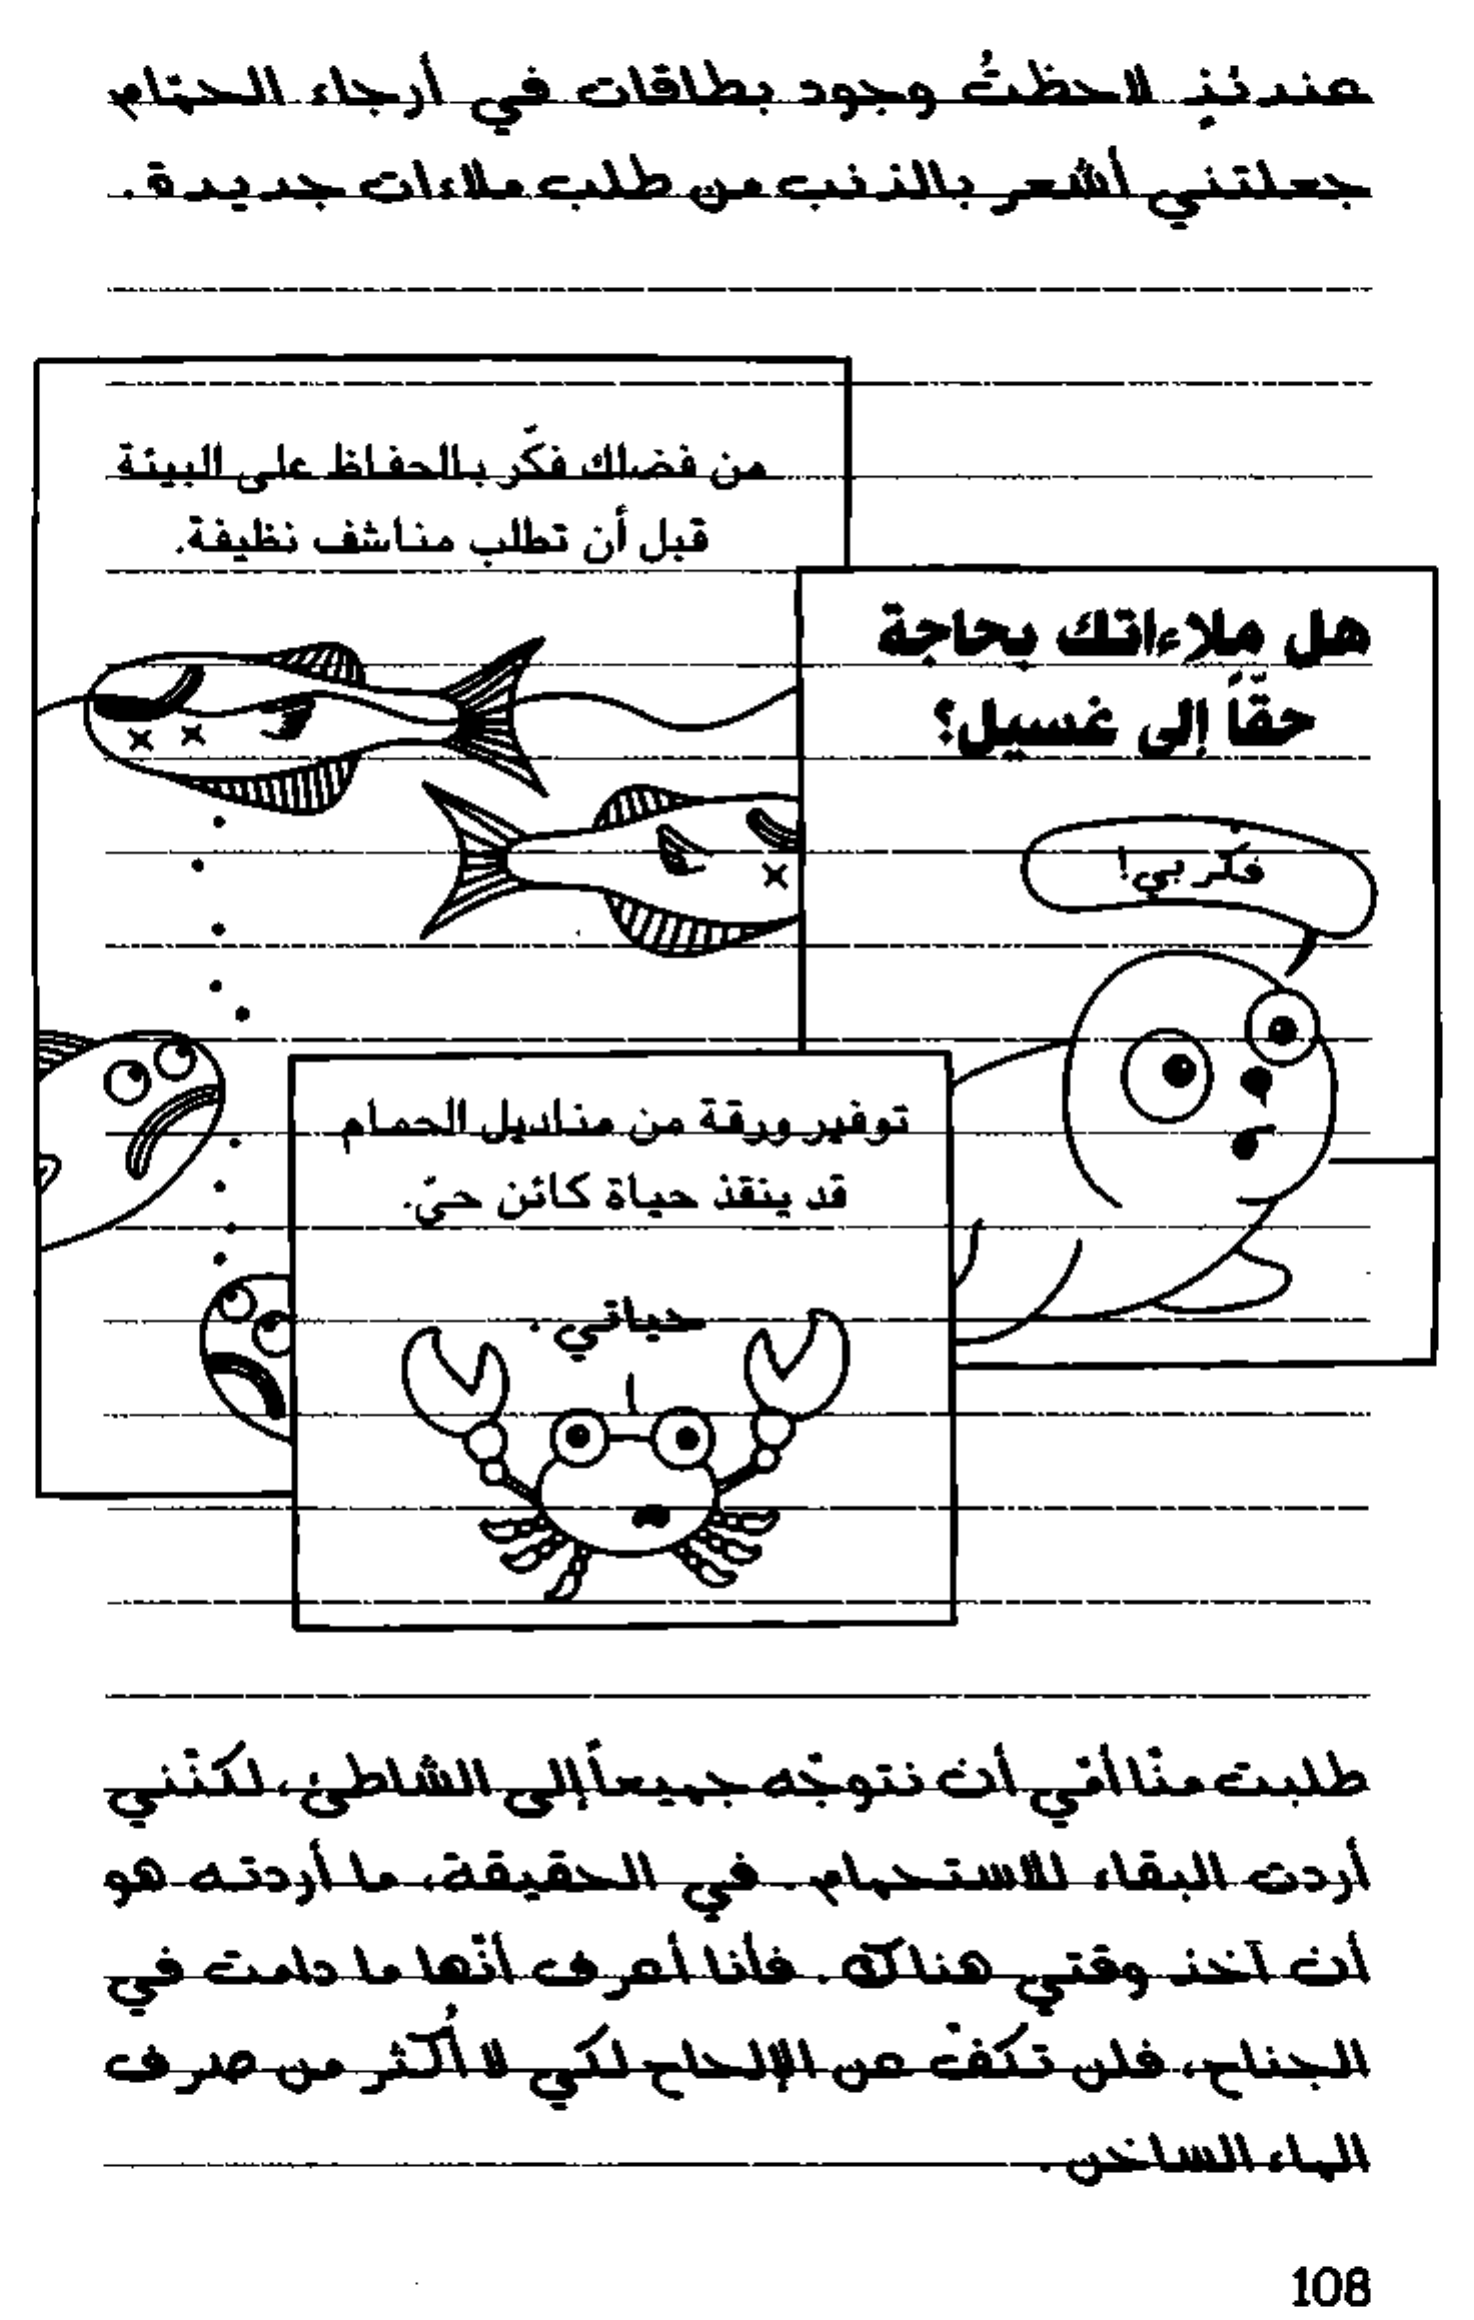 عندئذٍ لاحظتُ وجود بطاقات في أرجاء الحمّام
جعلتني أشعر بالذنب من طلب ملاءات جديدة.
من فضلك فكّر بالحفاظ على البيئة
قبل أن تطلب مناشف نظيفة.
هل ملاءاتك بحاجة
حقّاً إلى غسيل؟
فكّر بي!
توفير ورقة من مناديل الحمام
قد ينقذ حياة كائن حيّ.
حياتي.
طلبت منّا أمّي أن نتوجّه جميعاً إلى الشاطئ، لكنّني
أردت البقاء للاستحمام. في الحقيقة، ما أردته هو
أن آخذ وقتي هناك. فأنا أعرف أنّها ما دامت في
الجناح، فلن تكفّ عن الإلحاح لكي لا أُكثر من صرف
الماء الساخن.
108